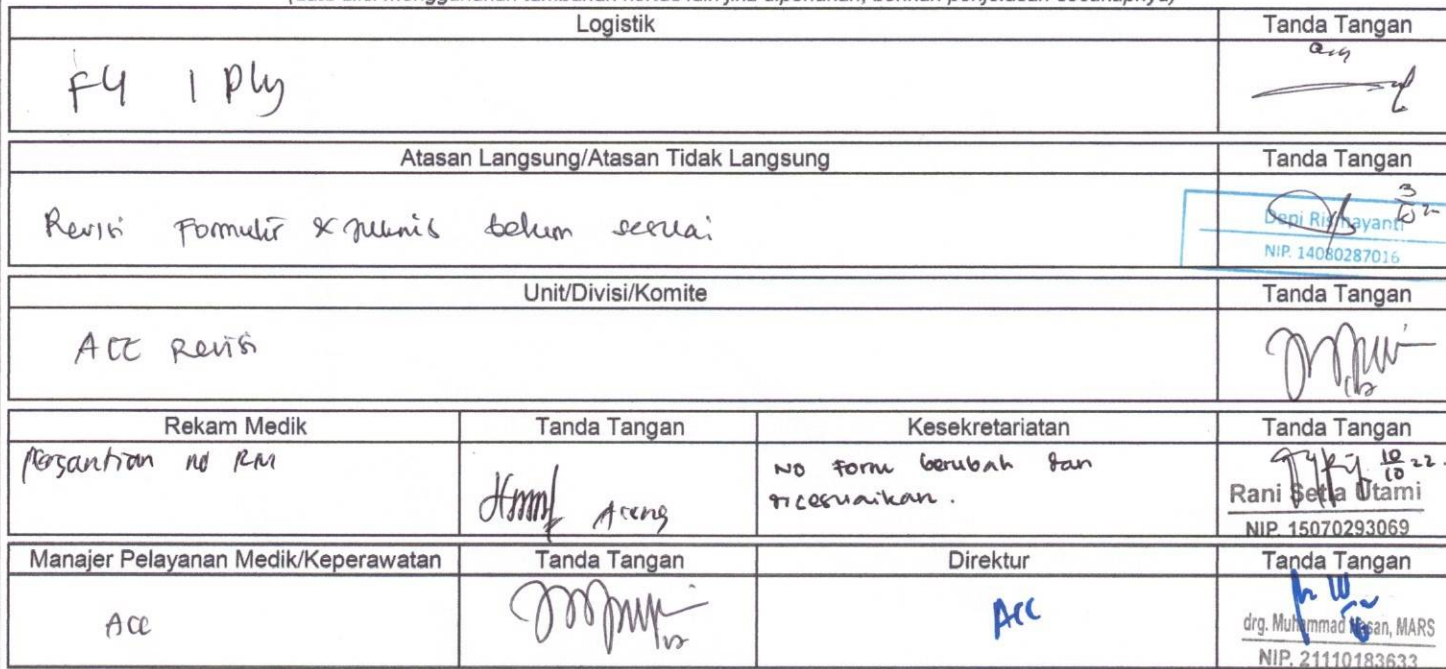 (data diisi menggunakan tambahan kertas lain jika diperlukan, berikan penjelasan secukupnya)
Logistik Tanda Tangan
F4 1 Ply
Atasan Langsung/Atasan Tidak Langsung Tanda Tangan
Revisi Formulir & juknis belum sesuai
Depi Rismayanti
NIP. 14080287016
Unit/Divisi/Komite Tanda Tangan
ACC Revisi
Rekam Medik Tanda Tangan Kesekretariatan Tanda Tangan
Pergantian no RM
Aceng
No Form berubah dan
disesuaikan.
10/10 22.
Rani Setia Utami
NIP. 15070293069
Manajer Pelayanan Medik/Keperawatan Tanda Tangan Direktur Tanda Tangan
Acc
Acc
drg. Muhammad Hasan, MARS
NIP. 21110183633